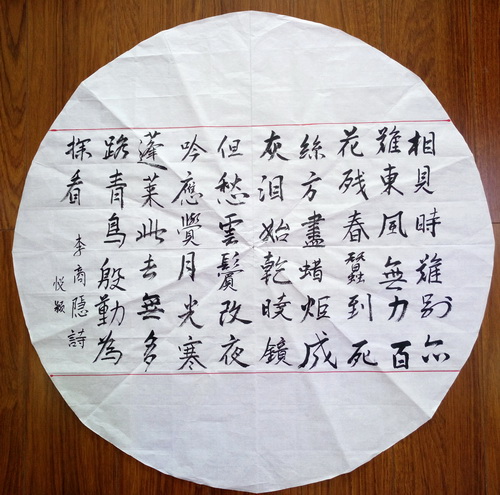 相見時難別亦
難東風無力百
花残春蠶到死
絲方盡蜡炬成
灰泪始乾曉鏡
但愁雲鬢改夜
吟應覺月光寒
蓬萊此去無多
路青鳥殷勤為
探看
李商隱詩